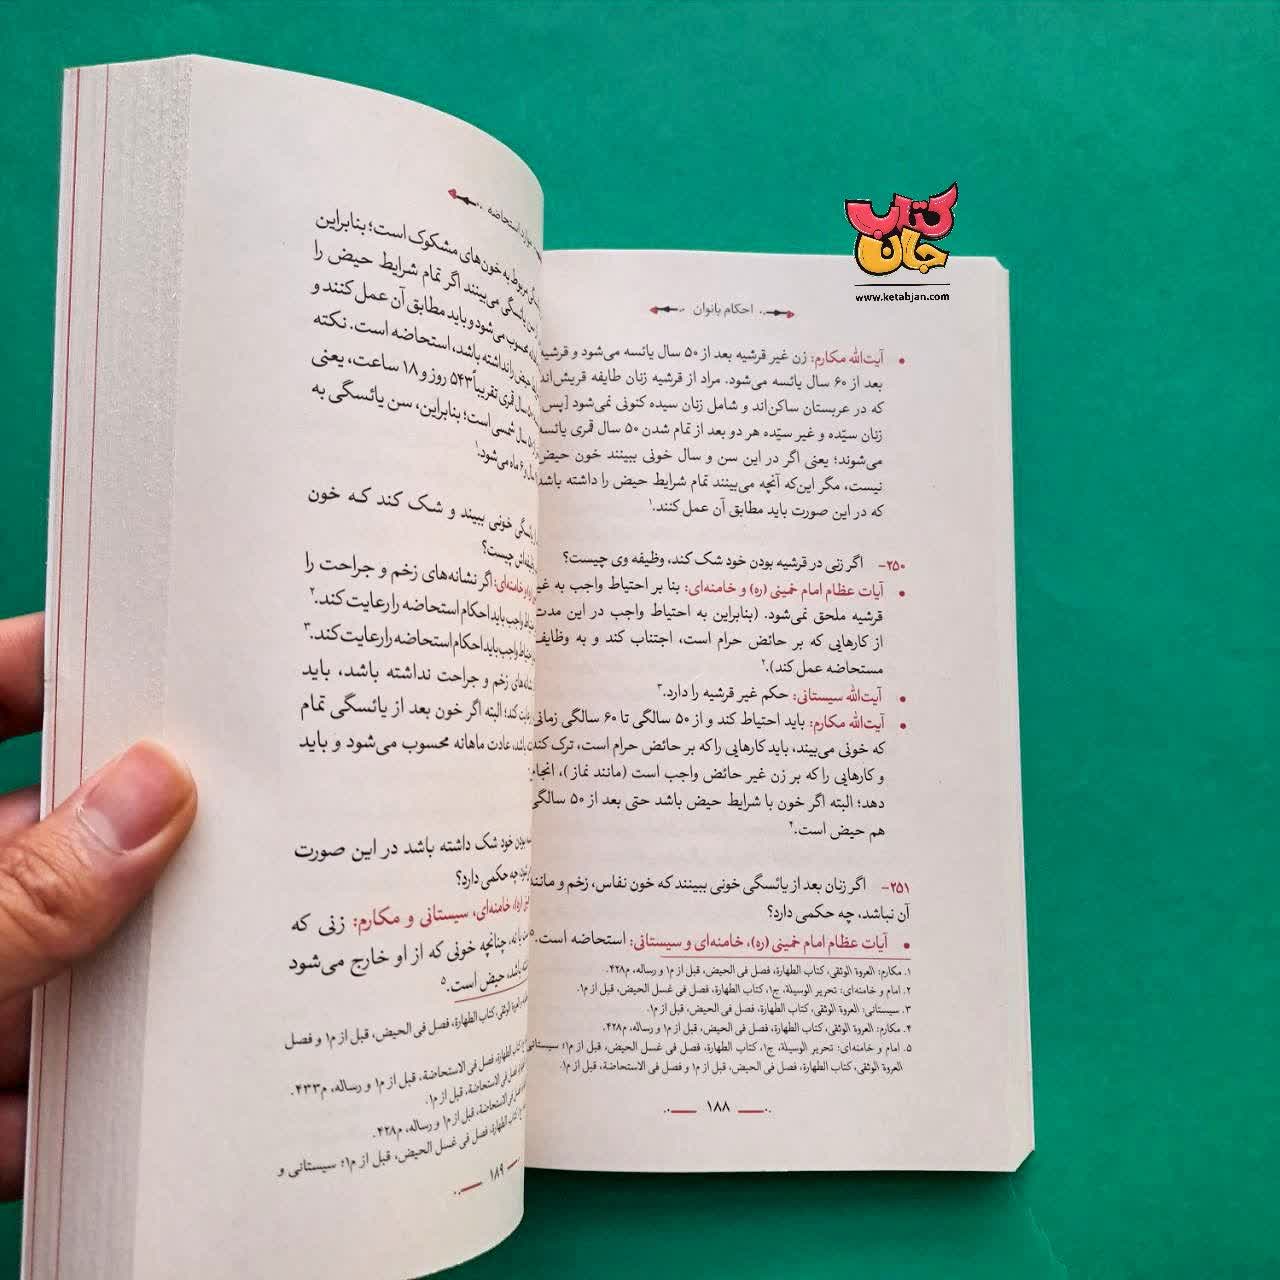 کتاب جان
www.ketabjan.com
احکام بانوان
آیت‌الله مکارم: زن غیر قرشیه بعد از ۵۰ سال یائسه می‌شود و قرشیه
بعد از ۶۰ سال یائسه می‌شود. مراد از قرشیه زنان طایفه قریش‌اند
که در عربستان ساکن‌اند و شامل زنان سیده کنونی نمی‌شود [پس
زنان سیّده و غیر سیّده هر دو بعد از تمام شدن ۵۰ سال قمری یائسه
می‌شوند؛ یعنی اگر در این سن و سال خونی ببینند خون حیض
نیست، مگر این‌که آنچه می‌بینند تمام شرایط حیض را داشته باشد
که در این صورت باید مطابق آن عمل کنند.۱
۲۵۰- اگر زنی در قرشیه بودن خود شک کند، وظیفه وی چیست؟
آیات عظام امام خمینی (ره) و خامنه‌ای: بنا بر احتیاط واجب به غیر
قرشیه ملحق نمی‌شود. (بنابراین به احتیاط واجب در این مدت
از کارهایی که بر حائض حرام است، اجتناب کند و به وظایف
مستحاضه عمل کند).۲
آیت‌الله سیستانی: حکم غیر قرشیه را دارد.۳
آیت‌الله مکارم: باید احتیاط کند و از ۵۰ سالگی تا ۶۰ سالگی زمانی
که خونی می‌بیند، باید کارهایی را که بر حائض حرام است، ترک کند
و کارهایی را که بر زن غیر حائض واجب است (مانند نماز)، انجام
دهد؛ البته اگر خون با شرایط حیض باشد حتی بعد از ۵۰ سالگی
هم حیض است.۴
۲۵۱- اگر زنان بعد از یائسگی خونی ببینند که خون نفاس، زخم و مانند
آن نباشد، چه حکمی دارد؟
آیات عظام امام خمینی (ره)، خامنه‌ای و سیستانی: استحاضه است.۵
۱. مکارم: العروة الوثقی، کتاب الطهارة، فصل فی الحیض، قبل از م۱ و رساله، م۴۲۸.
۲. امام و خامنه‌ای: تحریر الوسیلة، ج۱، کتاب الطهارة، فصل فی غسل الحیض، قبل از م۱.
۳. سیستانی: العروة الوثقی، کتاب الطهارة، فصل فی الحیض، قبل از م۱.
۴. مکارم: العروة الوثقی، کتاب الطهارة، فصل فی الحیض، قبل از م۱ و رساله، م۴۲۸.
۵. امام و خامنه‌ای: تحریر الوسیلة، ج۱، کتاب الطهارة، فصل فی غسل الحیض، قبل از م۱؛ سیستانی
العروة الوثقی، کتاب الطهارة، فصل فی الحیض، قبل از م۱ و فصل فی الاستحاضة، قبل از م۱.
۱۸۸
استحاضه
مربوط به خون‌های مشکوک است؛ بنابراین
سن یائسگی می‌بینند اگر تمام شرایط حیض را
محسوب می‌شود و باید مطابق آن عمل کنند و
حیض را نداشته باشد، استحاضه است. نکته
سال قمری تقریباً ۵۴۳ روز و ۱۸ ساعت، یعنی
سال شمسی است؛ بنابراین، سن یائسگی به
و ۶ ماه می‌شود.۱
خونی ببیند و شک کند که خون
چیست؟
و خامنه‌ای: اگر نشانه‌های زخم و جراحت را
واجب باید احکام استحاضه را رعایت کند.۲
واجب باید احکام استحاضه را رعایت کند.۳
زخم و جراحت نداشته باشد، باید
کند؛ البته اگر خون بعد از یائسگی تمام
باشد، عادت ماهانه محسوب می‌شود و باید
بودن خود شک داشته باشد در این صورت
چه حکمی دارد؟
(ره)، خامنه‌ای، سیستانی و مکارم: زنی که
یا نه، چنانچه خونی که از او خارج می‌شود
باشد، حیض است.۵
العروة الوثقی، کتاب الطهارة، فصل فی الحیض، قبل از م۱ و فصل
کتاب الطهارة، فصل فی الاستحاضة، قبل از م۱ و رساله، م۴۳۳.
فصل فی الاستحاضة، قبل از م۱.
فصل فی الاستحاضة، قبل از م۱ و رساله، م۴۲۸.
کتاب الطهارة، فصل فی غسل الحیض، قبل از م۱؛ سیستانی و
۱۸۹